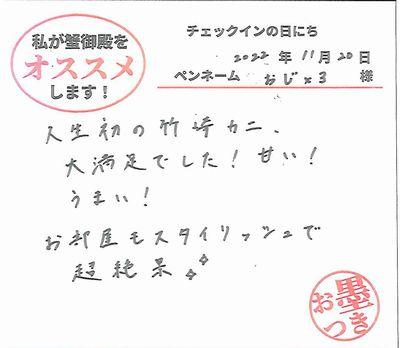 私が蟹御殿を
オススメ
します！
チェックインの日にち
2022年11月20日
ペンネーム おじ×3 様
人生初の竹崎カニ、
大満足でした！甘い！
うまい！
お部屋もスタイリッシュで
超絶景
お墨つき